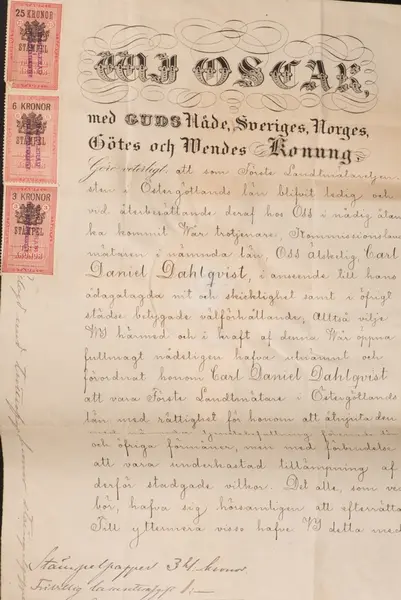 25 KRONOR
STÄMPEL
6 KRONOR
STÄMPEL
3 KRONOR
STÄMPEL
WJ OSCAR,
med GUDS Nåde, Sveriges, Norges,
Götes och Wendes Konung,
Göre veterligt, att som Förste Landtmätaretjen
sten i Östergötlands län blifvit ledig och
vid återbesättande deraf hos Oss i nådig åtan
ka kommit Wår trotjenare, Kommissionslan
mätaren i nämnda län, Oss älskelig Carl
Daniel Dahlqvist, i anseende till hans
ådagalagda nit och skicklighet samt i öfrigt
städse betygade välförhållande; Alltså vilje
WJ härmed och i kraft af denna Wår öppna
fullmagt nådeligen hafva utnämnt och
förordnat honom Carl Daniel Dahlqvist
att vara Förste Landtmätare i Östergötlands
län med rättighet för honom att åtnjuta den
och öfriga förmåner, men med förbindelse
att vara underkastad tillämpning af
derför stadgade vilkor. Det alle, som ve
bör, hafva sig hörsamligen att efterrätta
Till yttermera visso hafve WJ detta med
Stämpelpapper 34 kronor